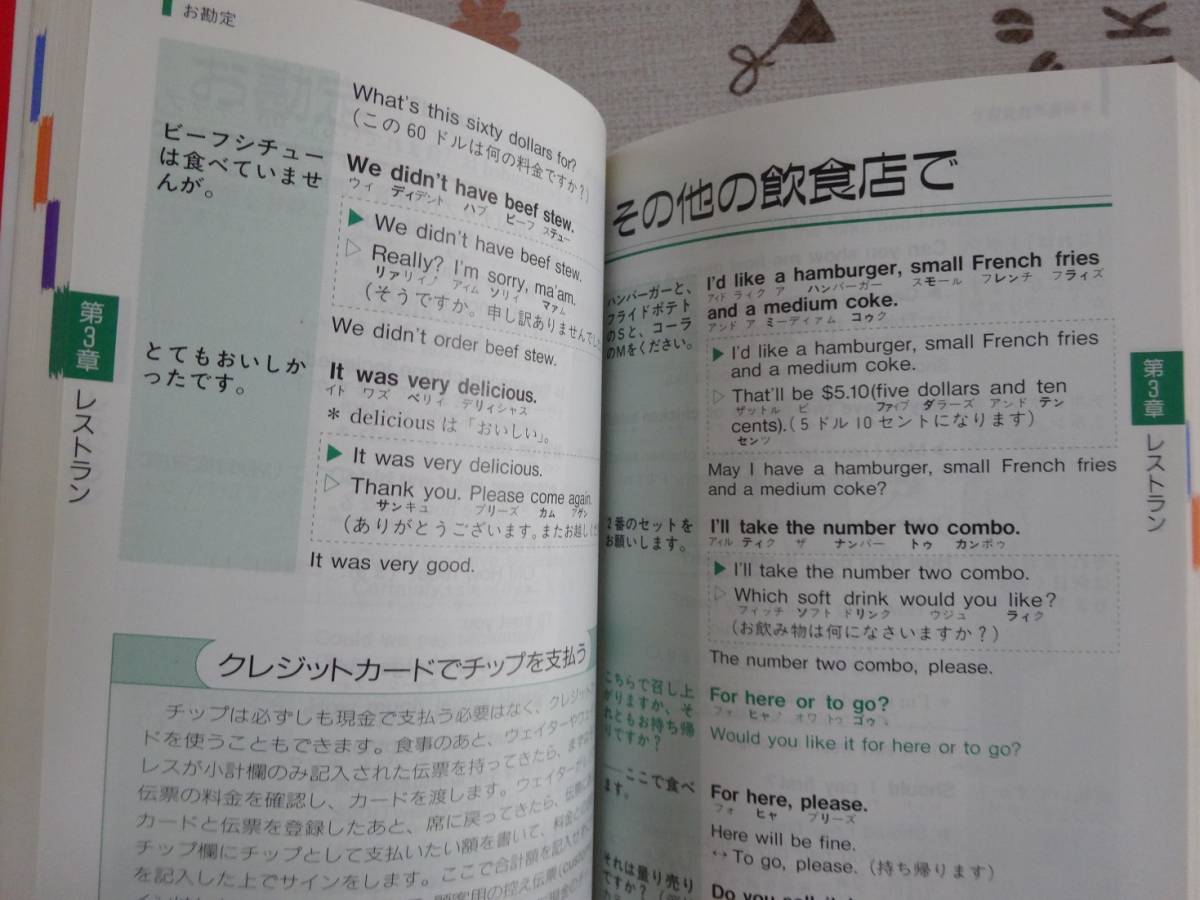 お勘定
What's this sixty dollars for?
(この60ドルは何の料金ですか?)
ビーフシチュー
は食べていませ
んが。
We didn't have beef stew.
ウィ ディデント ハブ ビーフ ステュー
▶ We didn't have beef stew.
▷ Really? I'm sorry, ma'am.
アイム ソリィ マァム
(そうですか。申し訳ありませんでし
We didn't order beef stew.
とてもおいしか
ったです。
It was very delicious.
イト ワズ ベリィ デリィシャス
* deliciousは「おいしい」。
▶ It was very delicious.
▷ Thank you. Please come again.
サンキュ プリーズ カム アゲン
(ありがとうございます。またお越しくだ
It was very good.
クレジットカードでチップを支払う
チップは必ずしも現金で支払う必要はなく、クレジット
ドを使うこともできます。食事のあと、ウェイターやウェ
レスが小計欄のみ記入された伝票を持ってきたら、まず
伝票の料金を確認し、カードを渡します。ウェイターが
カードと伝票を登録したあと、席に戻ってきたら、伝票の
チップ欄にチップとして支払いたい額を書いて、料金と
を記入した上でサインをします。ここで合計額を記入せ
顧客用の控え伝票
第3章
レストラン
その他の飲食店で
ハンバーガーと、
フライドポテト
のSと、コーラ
のMをください。
I'd like a hamburger, small French fries
アイド ライク ア ハンバーガー スモール フレンチ フライズ
and a medium coke.
アンド ア ミーディアム コゥク
▶ I'd like a hamburger, small French fries
and a medium coke.
▷ That'll be $5.10(five dollars and ten
ザットル ビ ファイブ ダラーズ アンド テン
cents).(5ドル10セントになります)
センツ
May I have a hamburger, small French fries
and a medium coke?
2番のセットを
お願いします。
I'll take the number two combo.
アィル ティク ザ ナンバー トゥ カンボゥ
▶ I'll take the number two combo.
▷ Which soft drink would you like?
フィッチ ソフト ドリンク ウジュ ライク
(お飲み物は何になさいますか?)
The number two combo, please.
こちらで召し上
がりますか、そ
れともお持ち帰
りですか?
For here or to go?
Would you like it for here or to go?
ここで食べ
ます。
For here, please.
フォ ヒャ プリーズ
Here will be fine.
↔ To go, please.(持ち帰ります)
それは量り売り
ですか?
第3章
レストラン